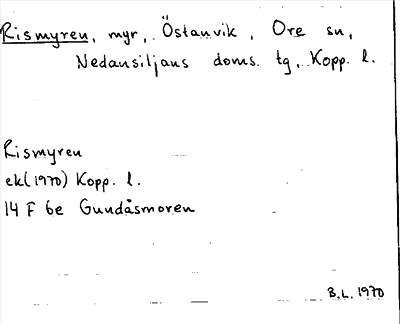 Rismyren, myr, Östanvik, Ore sn,
Nedansiljans doms. tg, Kopp. l.
Rismyren
ek(1970) Kopp. l.
14 F 6e Gundåsmoren
B.L. 1970